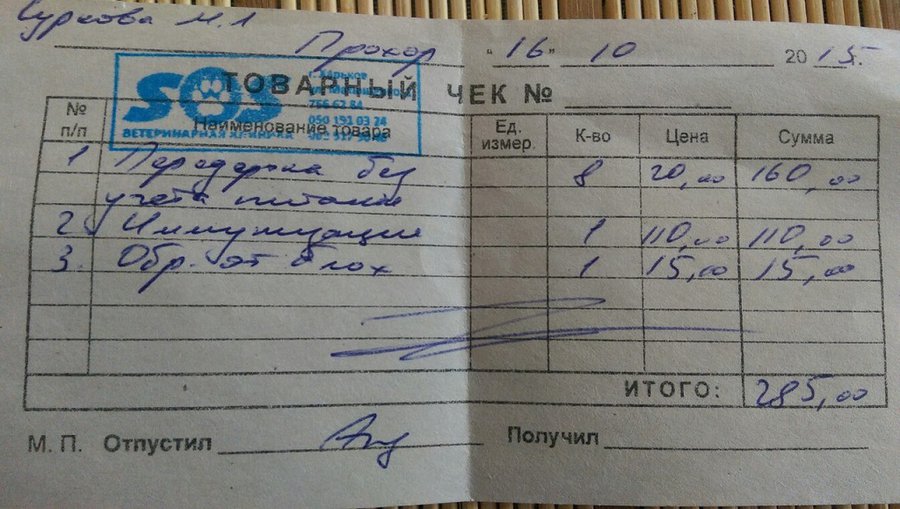 Суркова М.Л
Прохор "16" 10 2015.
SOS г. Харьков
ТОВАРНЫЙ ЧЕК №
756 62 84
050 191 03 24
ВЕТЕРИНАРНАЯ КЛИНИКА
№ п/п Наименование товара Ед. измер. К-во Цена Сумма
1 Передержка без 8 20,00 160,00
учета питания
2 Иммунизация 1 110,00 110,00
3. Обр. от блох 1 15,00 15,00
ИТОГО: 285,00
М. П. Отпустил Получил